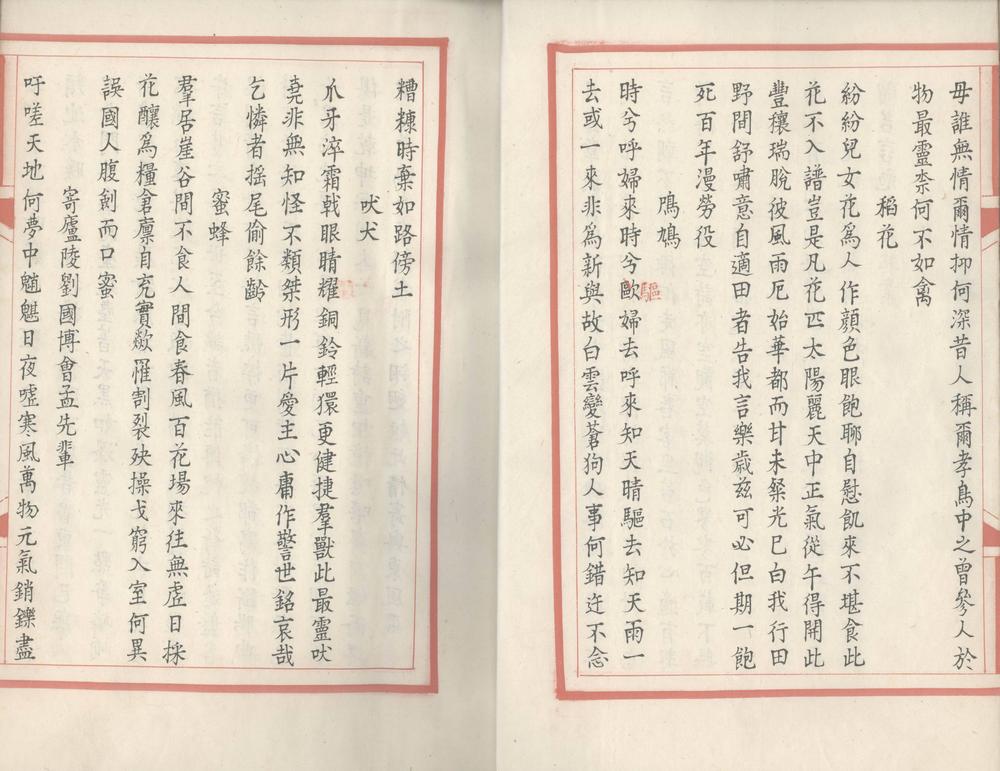 母誰無情爾情抑何深昔人稱爾孝鳥中之曾參人於
物最靈柰何不如禽
稻花
紛紛兒女花為人作顔色眼飽聊自慰飢來不堪食此
花不入譜豈是凡花匹太陽麗天中正氣從午得開此
豐穰瑞脫彼風雨厄始華都而甘未粲光已白我行田
野間舒嘯意自適田者告我言樂歲茲可必但期一飽
死百年漫勞役
鳲鳩
驅
時兮呼婦來時兮歐婦去呼來知天晴驅去知天雨一
去或一來非為新與故白雲變蒼狗人事何錯迕不念
糟糠時棄如路傍土
吠犬
爪牙淬霜戟眼睛耀銅鈴輕獧更健捷羣獸此最靈吠
堯非無知怪不類桀形一片愛主心庸作警世銘哀哉
乞憐者搖尾偷餘齡
蜜蜂
羣居崖谷間不食人間食春風百花場來往無虚日採
花釀為糧倉廪自充實歘罹割裂殃操戈窮入室何異
誤國人腹劍而口蜜
寄廬陵劉國博會孟先輩
吁嗟天地何夢中魑魅日夜噓寒風萬物元氣銷鑠盡